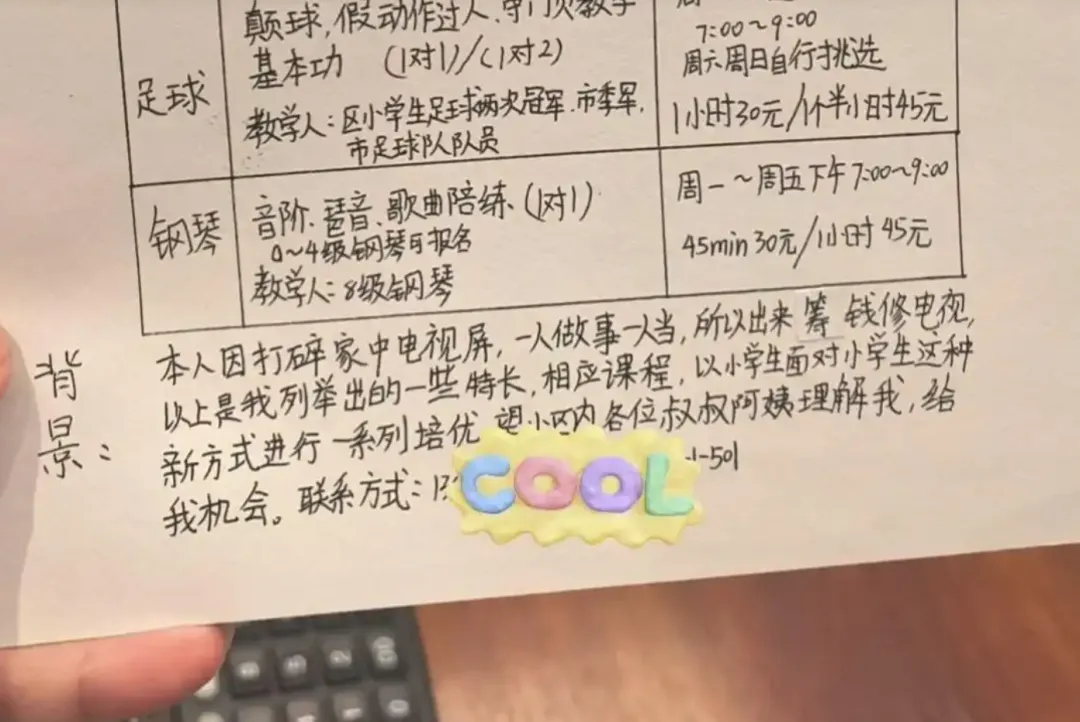 颠球,假动作过人、守门员教学
基本功 (1对1)/(1对2)
足球
教学人:区小学生足球两次冠军.市季军,
市足球队队员
7:00~9:00
周六周日自行挑选
1小时30元/1个半小时45元
钢琴
音阶、琶音、歌曲陪练、(1对1)
0~4级钢琴可报名
教学人:8级钢琴
周一~周五下午7:00~9:00
45min 30元/1小时45元
背景:
本人因打碎家中电视屏,一人做事一人当,所以出来筹钱修电视,
以上是我列举出的一些特长,相应课程,以小学生面对小学生这种
新方式进行一系列培优 望小区内各位叔叔阿姨理解我,给
我机会。联系方式:13 1-501
COOL